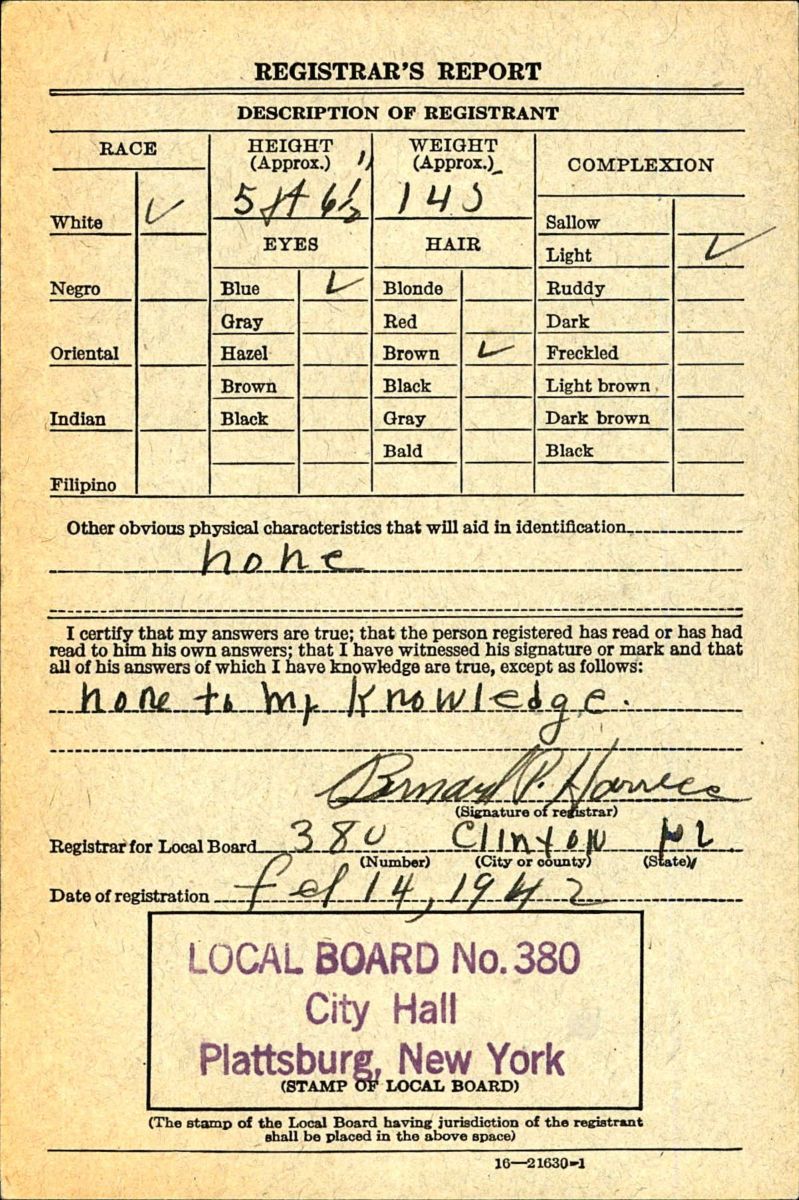 REGISTRAR'S REPORT
DESCRIPTION OF REGISTRANT
RACE
HEIGHT (Approx.)
WEIGHT (Approx.)
COMPLEXION
5 ft 6½"
145
White ✓
EYES
HAIR
Sallow
Light ✓
Negro
Blue ✓
Blonde
Ruddy
Gray
Red
Dark
Oriental
Hazel
Brown ✓
Freckled
Brown
Black
Light brown
Indian
Black
Gray
Dark brown
Bald
Black
Filipino
Other obvious physical characteristics that will aid in identification
none
I certify that my answers are true; that the person registered has read or has had
read to him his own answers; that I have witnessed his signature or mark and that
all of his answers of which I have knowledge are true, except as follows:
none to my knowledge.
Bernard P.
(Signature of registrar)
Registrar for Local Board 380 Clinton
(Number) (City or county) (State)
Date of registration Feb 14, 1942
LOCAL BOARD No. 380
City Hall
Plattsburg, New York
(STAMP OF LOCAL BOARD)
(The stamp of the Local Board having jurisdiction of the registrant
shall be placed in the above space)
16—21630-1